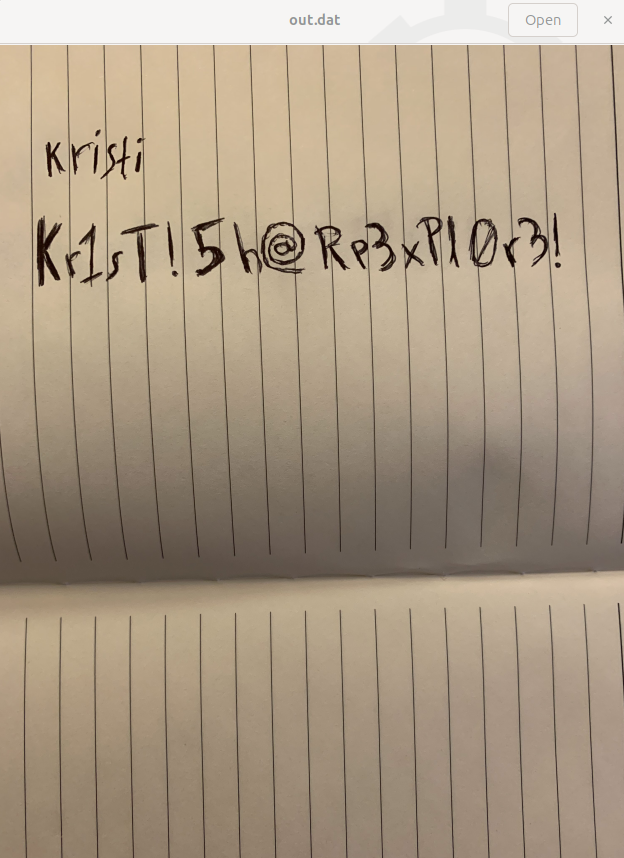 out.dat
Open
×
Kristi
Kr1sT!5h@Rp3xPl0r3!